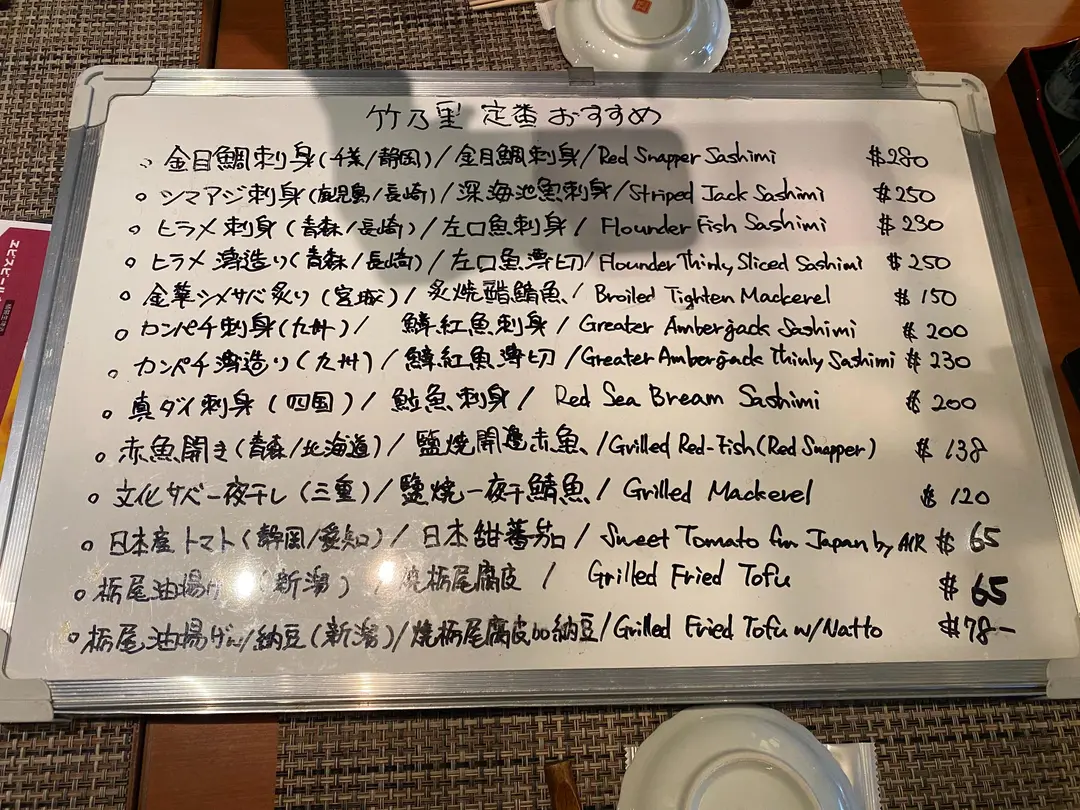 竹乃里 定番おすすめ
。金目鯛刺身(千葉/静岡)/金目鯛刺身/Red Snapper Sashimi $280
。シマアジ刺身(鹿児島/長崎)/深海池魚刺身/Striped Jack Sashimi $250
。ヒラメ刺身(青森/長崎)/左口魚刺身/Flounder Fish Sashimi $230
。ヒラメ薄造り(青森/長崎)/左口魚薄切/Flounder Thinly Sliced Sashimi $250
。金華シメサバ炙り(宮城)/炙焼醋鯖魚/Broiled Tighten Mackerel $150
。カンパチ刺身(九州)/鱆紅魚刺身/Greater Amberjack Sashimi $200
。カンパチ薄造り(九州)/鱆紅魚薄切/Greater Amberjack Thinly Sashimi $230
。真ダイ刺身(四国)/魬魚刺身/Red Sea Bream Sashimi $200
。赤魚開き(青森/北海道)/鹽焼開邊赤魚/Grilled Red-Fish(Red Snapper) $138
。文化サバ一夜干し(三重)/鹽焼一夜干鯖魚/Grilled Mackerel $120
。日本産トマト(静岡/愛知)/日本甜蕃茄/Sweet Tomato fm Japan by AIR $65
。栃尾油揚げ(新潟)/焼栃尾腐皮/Grilled Fried Tofu $65
。栃尾油揚げw/納豆(新潟)/焼栃尾腐皮bb納豆/Grilled Fried Tofu w/Natto $78-
ヱビスビール